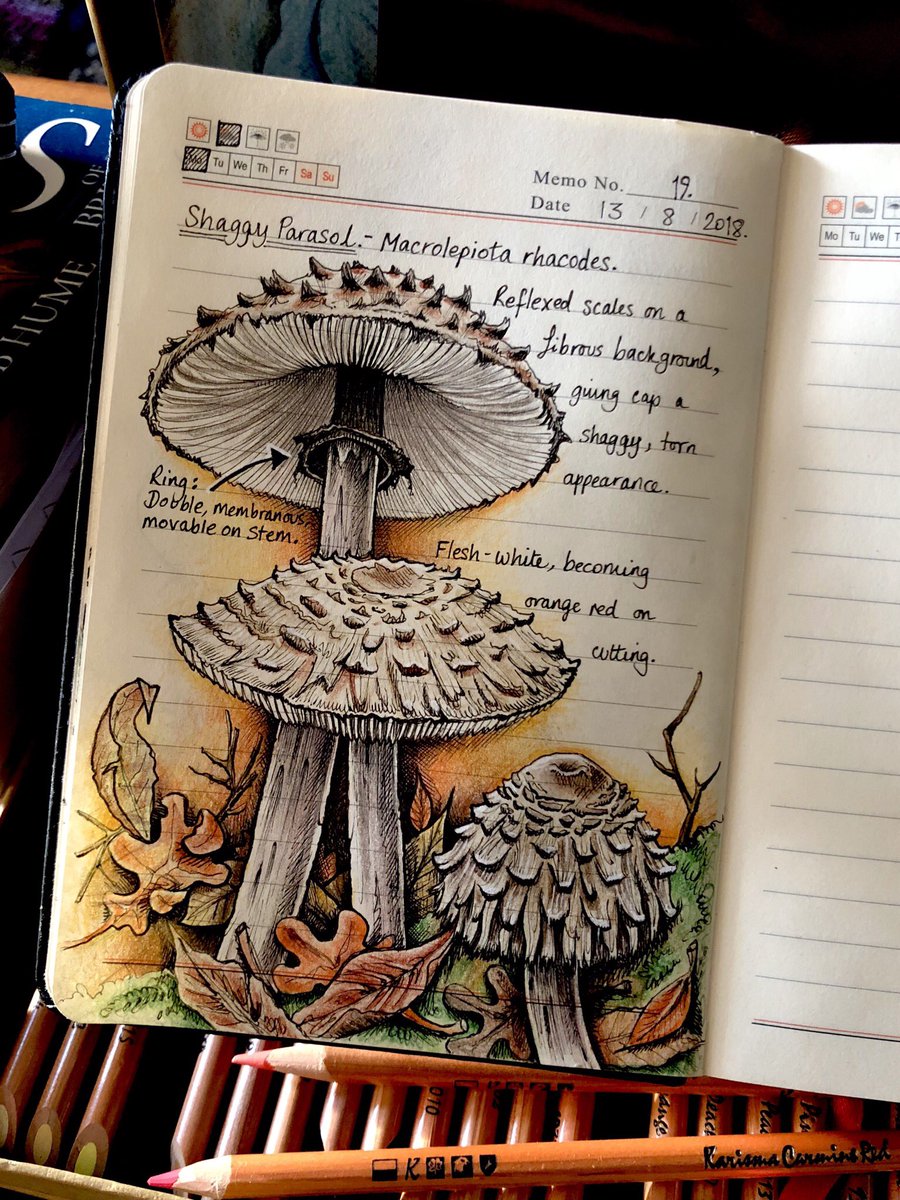 Mo Tu We Th Fr Sa Su
Memo No. 19.
Date 13 / 8 / 2018.
Shaggy Parasol. - Macrolepiota rhacodes.
Reflexed scales on a
fibrous background,
giving cap a
shaggy, torn
appearance.
Ring:
Dobble, membranous,
movable on Stem.
Flesh - white, becoming
orange red on
cutting.
Mo Tu We
S
HUME
010
Karisma Carmine Red